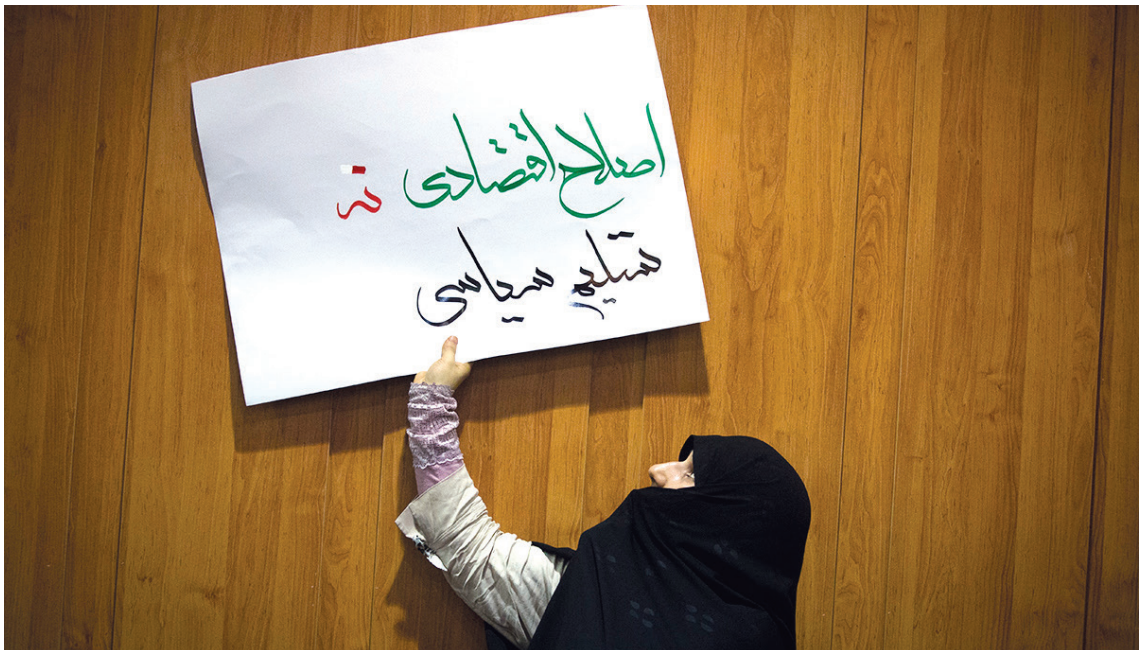 اصلاح اقتصادی نه
تسلیم سیاسی